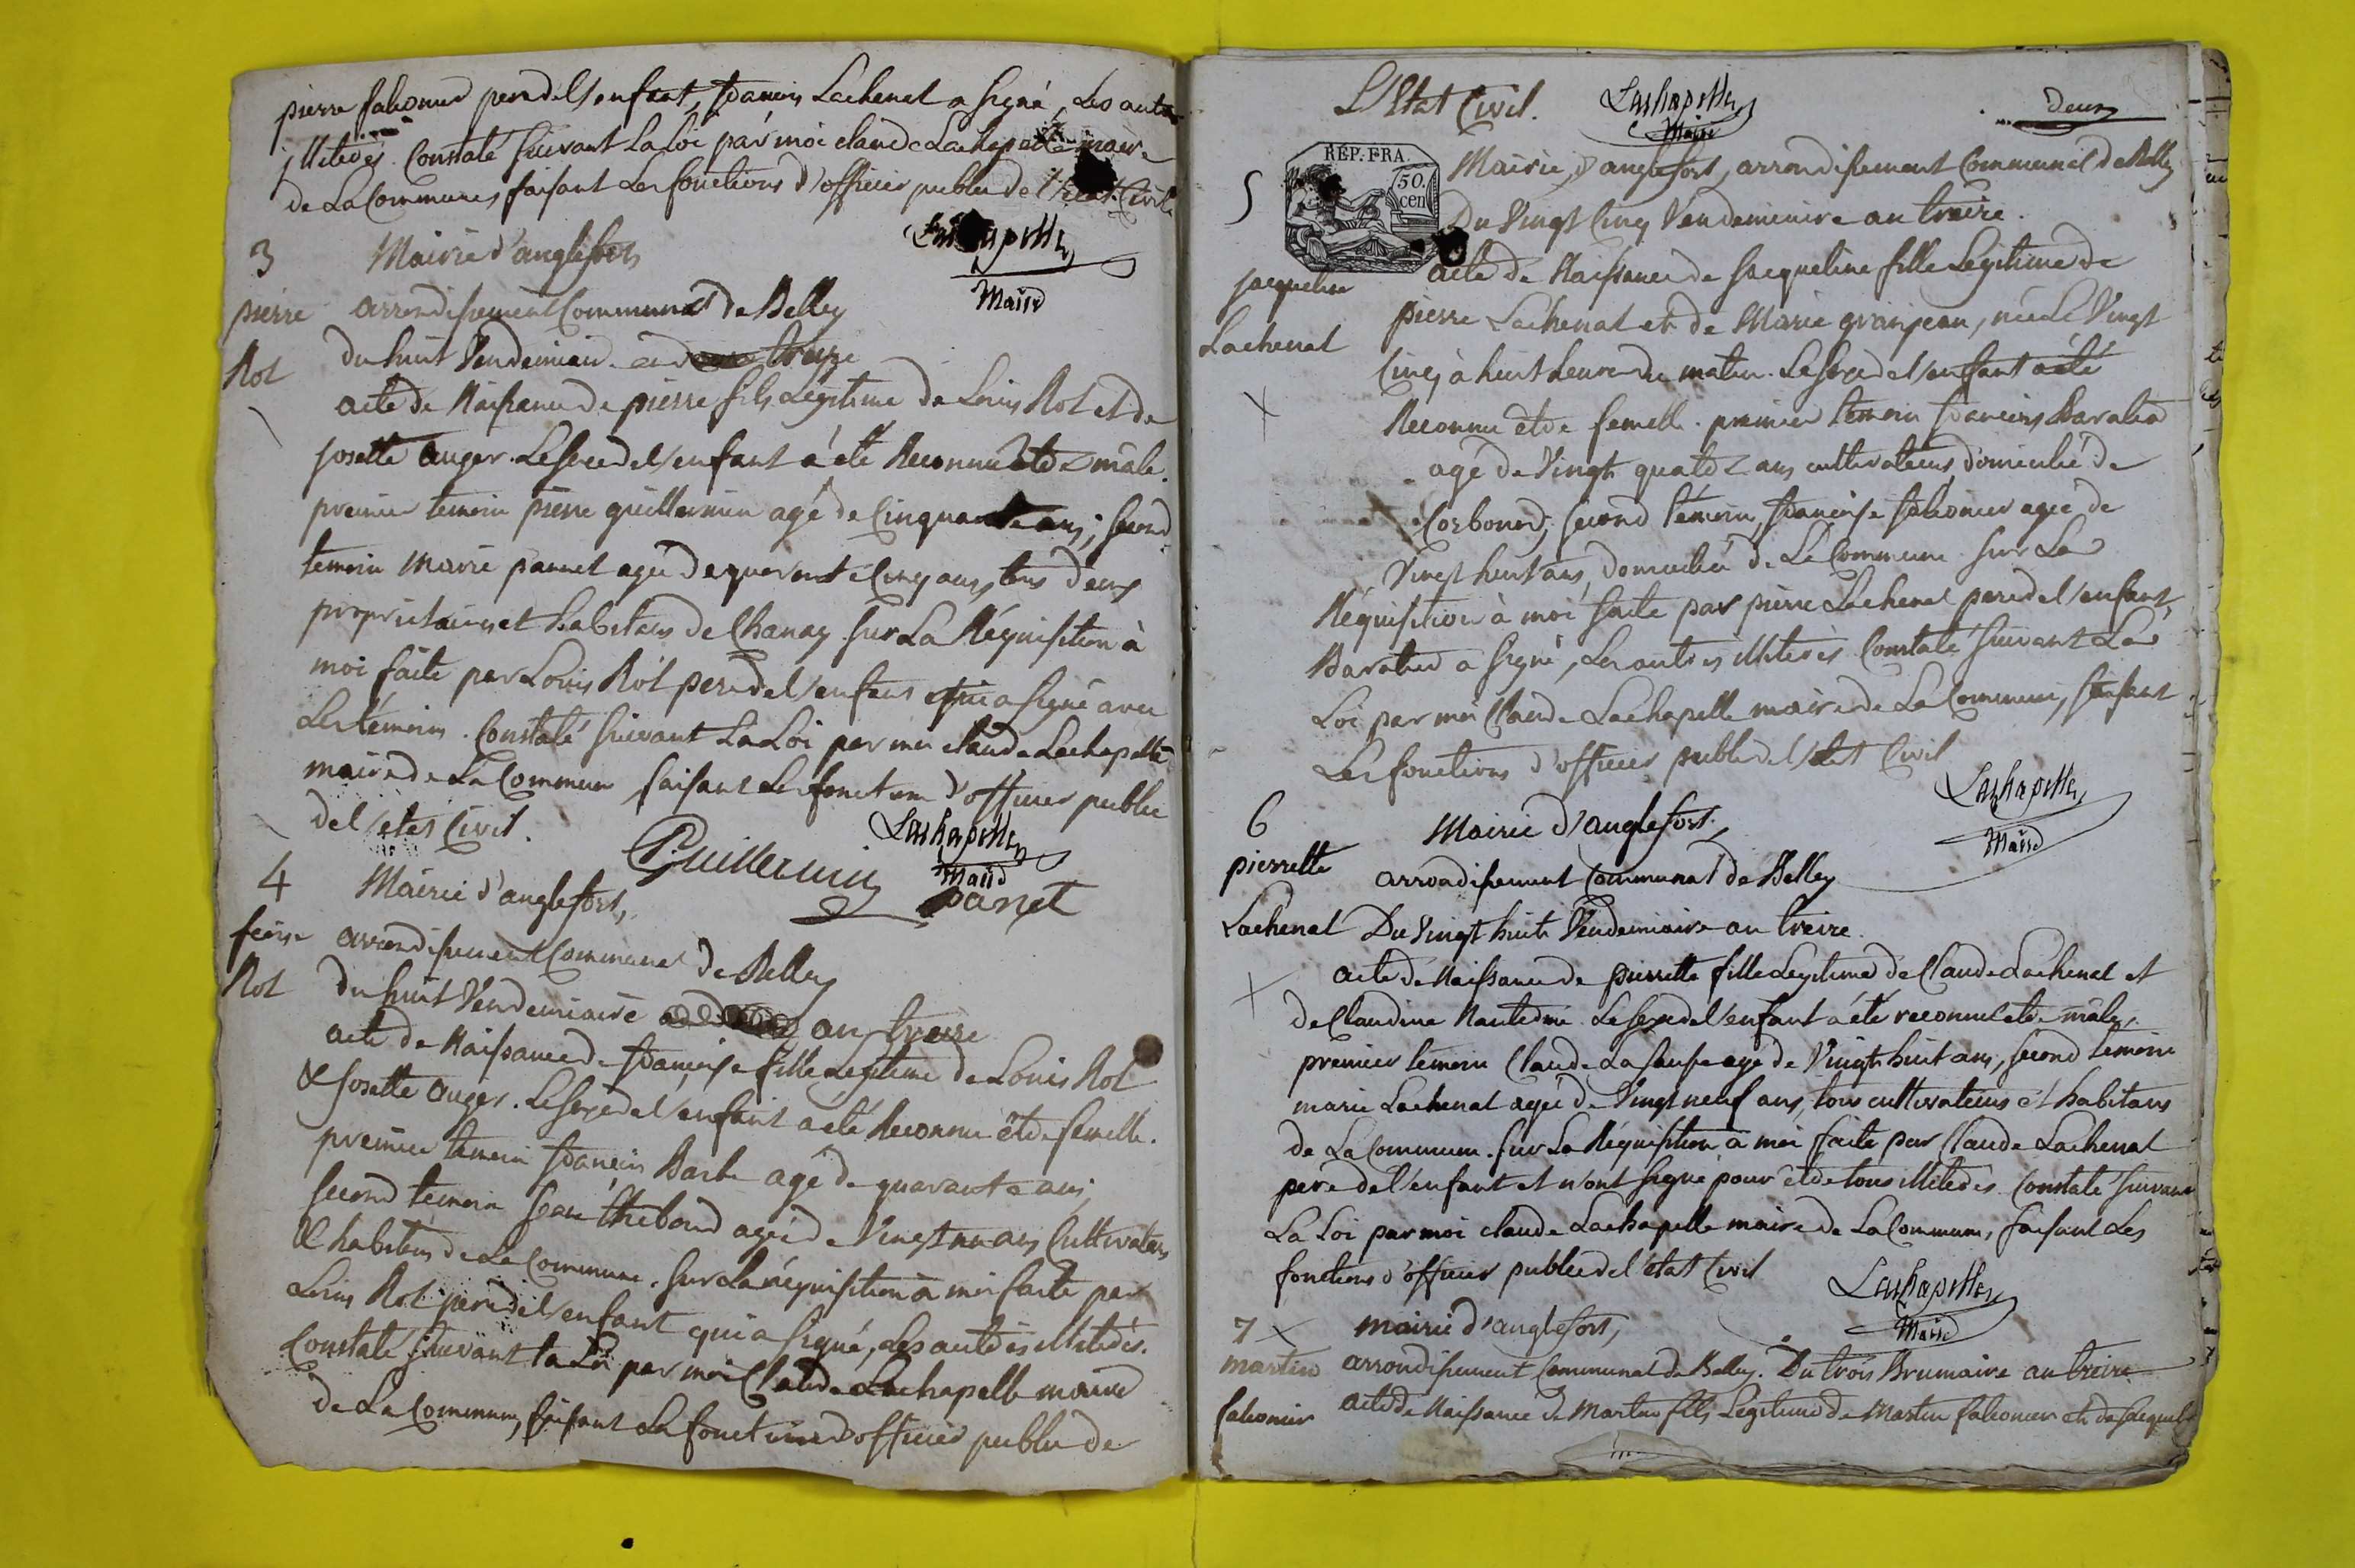 pierre falconnier pere de l'enfant, francois Lachenal a signé, Les autres
illiterés. Constaté suivant La Loi par moi claude Lachapelle maire
de La Commune, faisant Les fonctions d'officier public de l'état Civil
Lachapelle
Maire
3
pierre
Rol
Mairie d'anglefort
arrondissement Communal de Belley
du huit Vendemiaire an treize
acte de Naissance de pierre fils Légitime de Louis Rol et de
josette auger. Le sexe de l'enfant a été Reconnu etre mâle.
premier temoin pierre guillermin agé de Cinquante ans; second
temoin Marie pannet agée de quarente Cinq ans, tous deux
propriétaires et habitans de Chanay sur La Réquisition à
moi faite par Louis Rol pere de l'enfant qui a signé avec
Les témoins. Constaté suivant La Loi par moi claude Lachapelle
maire de La Commune faisant Les fonctions d'officier public
de l'etat Civil.
Lachapelle
Maire
PGuillermin
panet
4
Rol
Mairie d'anglefort,
arrondissement Communal de Belley
du huit Vendemiaire an treize
acte de Naissance de francoise fille Legitime de Louis Rol
& josette auger. Le sexe de l'enfant a été Reconnu etre femelle.
premier temoin francois Barbe agé de quarante ans,
second temoin jean thebond agé de Vingt un ans Cultivateurs
& habitans de La Commune. sur La réquisition à moi faite par
Louis Rol pere de l'enfant qui a signé, Les autres illiterés.
Constaté suivant la Loi par moi Claude Lachapelle maire
de La Commune, faisant La fonction d'officier public de
L'Etat Civil.
Lachapelle
Maire
deux
REP. FRA.
50.
cen
5
jacqueline
Lachenal
Mairie d'anglefort, arrondissement Communal de Belley
Du Vingt Cinq Vendemiaire an treize.
acte de Naissance de jacqueline fille Legitime de
pierre Lachenal et de Marie granjean, née Le Vingt
Cinq à huit heures du matin. Le sexe de l'enfant a été
Reconnu etre femelle. premier temoin francois Baratier
agé de Vingt quatre ans cultivateur, domicilié de
Corbonod; second témoin francoise falconier agée de
Vingt huit ans, domiciliée de La Commune sur La
Réquisition à moi faite par pierre Lachenal pere de l'enfant,
Baratier a signé, Les autres illiterés Constaté suivant La
Loi par moi Claude Lachapelle maire de La Commune, faisant
Les fonctions d'officier public de l'état Civil
Lachapelle
Maire
6
pierrette
Lachenal
Mairie d'anglefort,
arrondissement Communal de Belley
Du Vingt huit Vendemiaire an treize.
acte de Naissance de pierrette fille Legitime de Claude Lachenal et
de Claudine Le sexe de l'enfant a été reconnu etre mâle,
premier temoin Claude agé de Vingt huit ans, second temoin
marie Lachenal agée de Vingt neuf ans, tous cultivateurs et habitans
de La Commune. sur La Réquisition à moi faite par Claude Lachenal
pere de l'enfant et n'ont signé pour etre tous illiterés Constaté suivant
La Loi par moi claude Lachapelle maire de La Commune, faisant Les
fonctions d'officier public de l'état Civil
Lachapelle
Maire
7
martin
falconier
mairie d'anglefort,
arrondissement Communal de Belley. Du trois Brumaire an treize
acte de Naissance de Martin fils Legitime de Martin falconier et de